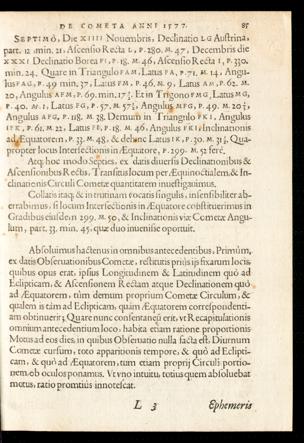 DE COMETA ANNI 1577. 85
SEPTIMÒ, Die XIIII Nouembris, Declinatio LG Austrina,
part. 12 min. 21, Ascensio Recta L, P. 280. M. 47, Decembris die
XXXI Declinatio Borea FI, P. 18. M. 46, Ascensio Recta I, P. 330.
min. 24, Quare in Triangulo FAM, Latus FA, P. 71. M. 14, Angu-
lus FAG, P. 49 min. 37, Latus FM, P. 46 M. 9, Latus AM, P. 62. M.
20, Angulus AFM, P. 69. min. 17½. Et in Trigono FMG, Latus MG,
P. 40. M. 1, Latus FG, P. 57. M. 57½, Angulus MFG, P. 49. M. 20½,
Angulus AFG, P. 118. M. 38. Demum in Triangulo FKI, Angulus
IFK, P. 61. M. 22, Latus FI, P. 18. M. 46, Angulus FKI, Inclinationis
ad Æquatorem, P. 33. M. 48, & deniq; Latus IK, P. 30. M. 31½, Qua-
propter locus Intersectionis in Æquatore, P. 299. M. 52 ferè.
Atq; hoc modo Septies, ex datis diuersis Declinationibus &
Ascensionibus Rectis, Transitus locum per Æquinoctialem, & In-
clinationis Circuli Cometæ quantitatem inuestigauimus.
Collatis itaq; & in trutinam vocatis singulis, insensibiliter ab-
errabimus, si locum Intersectionis in Æquatore constituerimus in
Gradibus eiusdem 299. M. 50, & Inclinationis viæ Cometæ Angu-
lum, part. 33. min. 45, quæ duo inuenisse oportuit.
Absoluimus hactenus in omnibus antecedentibus, Primùm,
ex datis Obseruationibus Cometæ, restitutis priùs ip fixarum locis,
quibus opus erat, ipsius Longitudinem & Latitudinem quò ad
Eclipticam, & Ascensionem Rectam atque Declinationem quò
ad Æquatorem, tùm demum proprium Cometæ Circulum, &
qualem is tàm ad Eclipticam, quàm Æquatorem correspondenti-
am obtinuerit; Quare nunc consentaneũ erit, vt Recapitulationis
omnium antecedentium loco, habita etiam ratione proportionis
Motus ad eos dies, in quibus Obseruatio nulla facta est, Diurnum
Cometæ cursum, toto apparitionis tempore, & quò ad Eclipti-
cam, & quò ad Æquatorem, tum etiam proprij Circuli portio-
nem, ob oculos ponamus. Vt vno intuitu, totius quem absoluebat
motus, ratio promtiùs innotescat.
L 3 Ephemeris